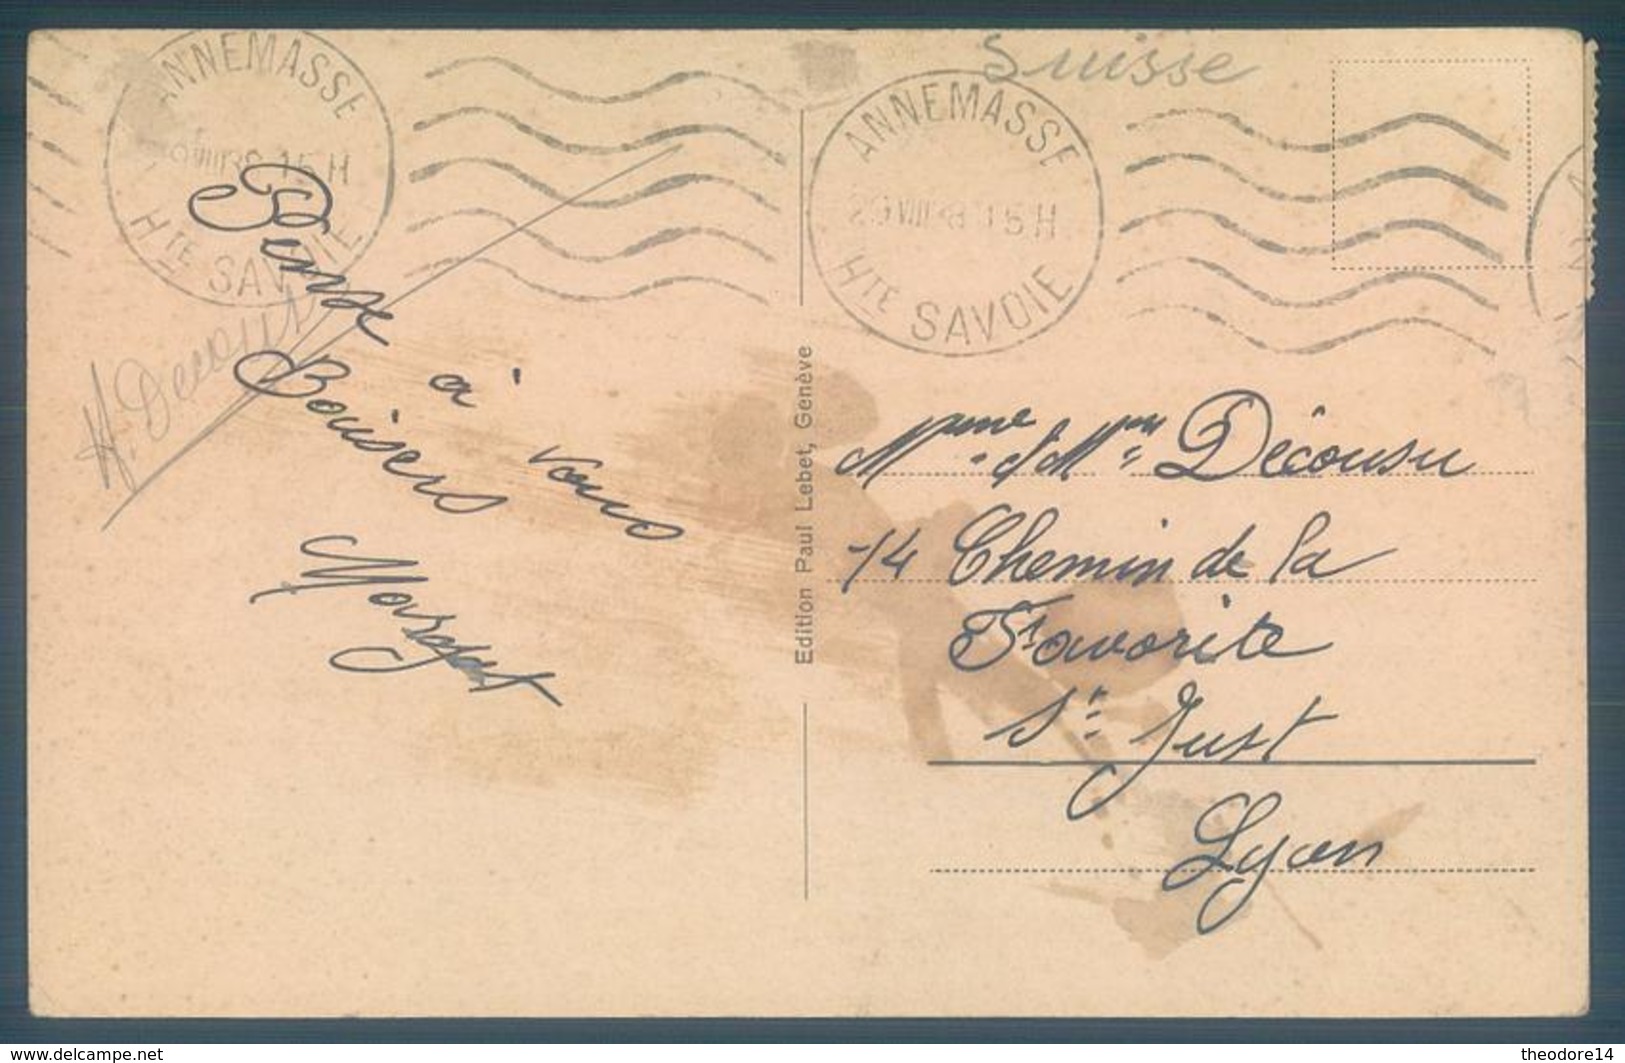 Suisse
ANNEMASSE
15 H
HTE SAVOIE
ANNEMASSE
29 VIII 38 15 H
HTE SAVOIE
Pense
à vous
Baisers
Margot
Edition Paul Lebet, Genève
Mme & Mr Décousu
14 Chemin de la
Favorite
St Just
Lyon
www.delcampe.net
theodore14